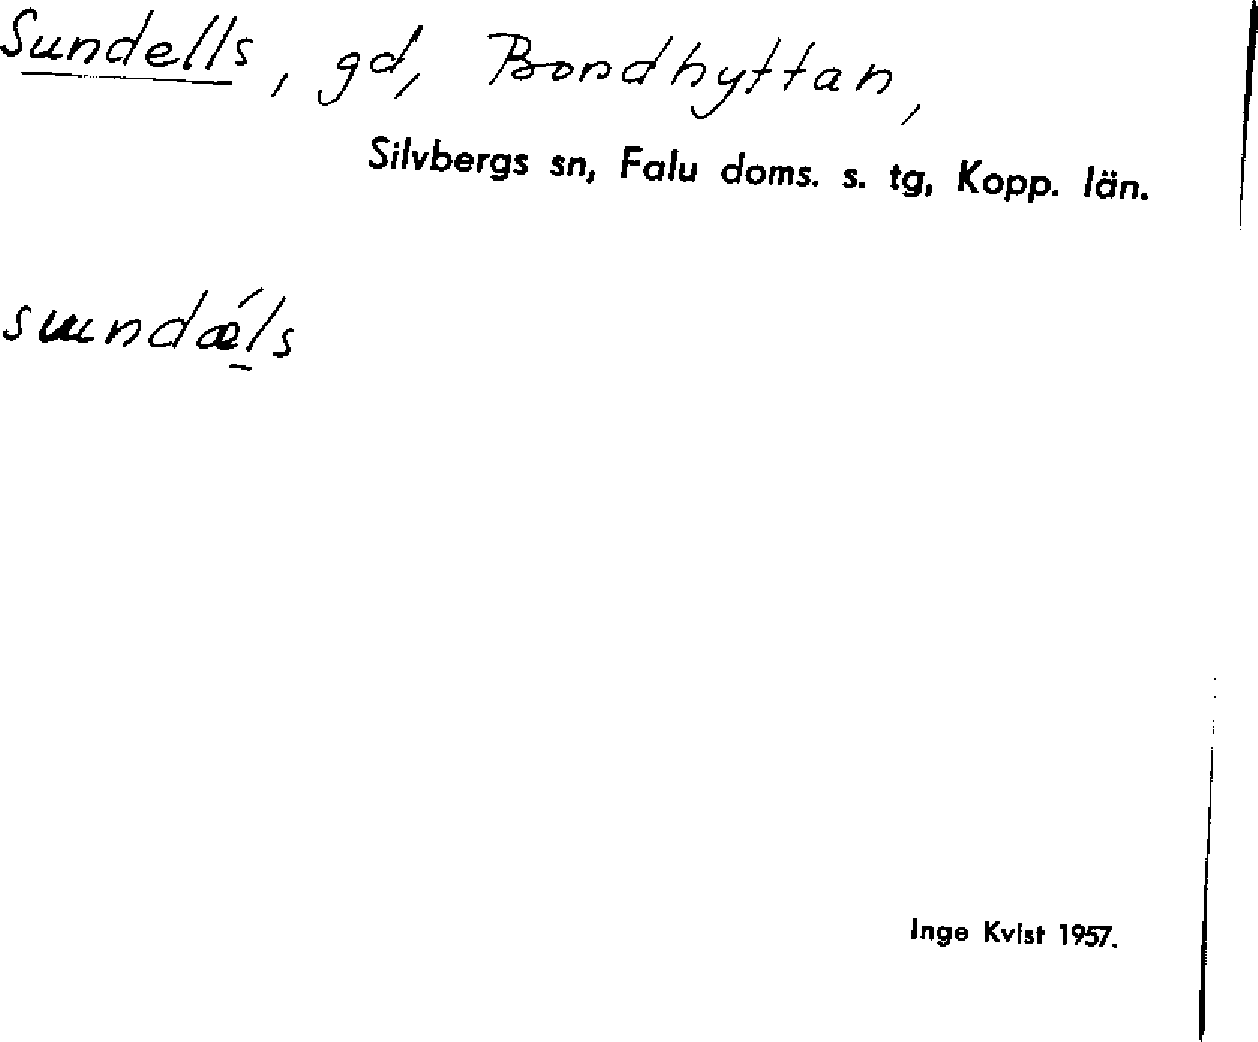 Sundells, gd, Bondhyttan,
Silvbergs sn, Falu doms. s. tg, Kopp. län.
sɯndǽls
Inge Kvist 1957.